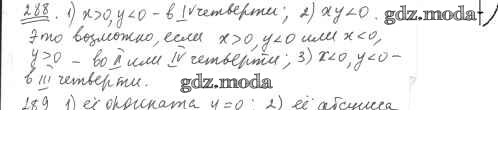 288. 1) x>0, y<0 - в IV четверти; 2) xy<0. gdz.moda
Это возможно, если x>0, y<0 или x<0,
y>0 - во II или IV четверти; 3) x<0, y<0 -
в III четверти. gdz.moda
289 1) её ордината y=0; 2) её абсцисса